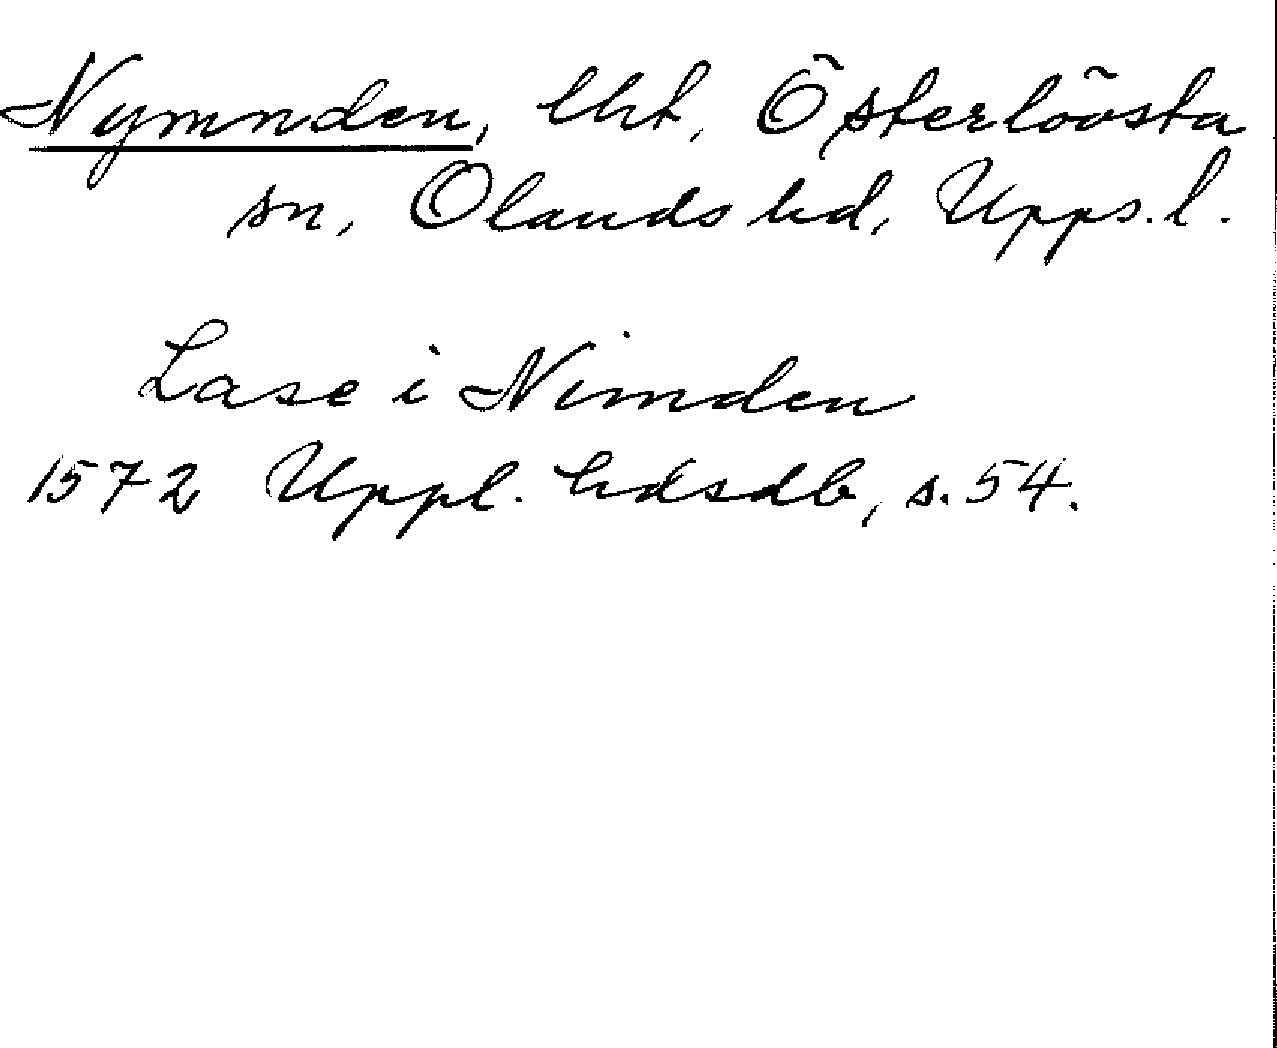 Nymnden, lht, Österlövsta
sn, Olands hd, Upps. l.
Lase i Nimden
1572 Uppl. hdsdb, s. 54.